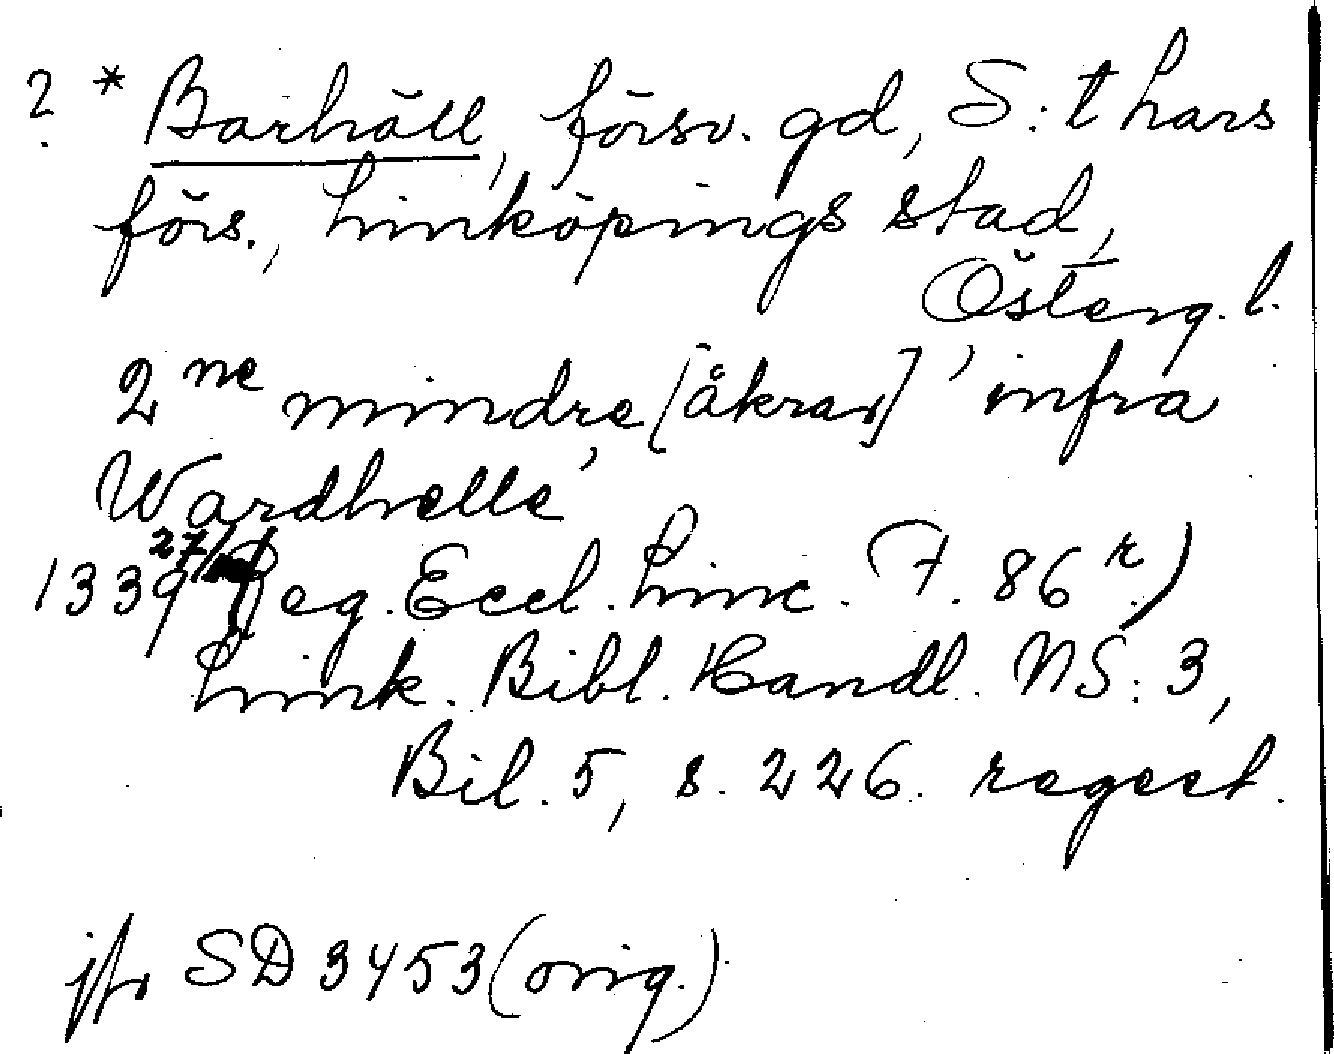 ? * Barhäll, försv. gd, S:t Lars
förs., Linköpings stad,
Österg. l.
2ne mindre [åkrar] 'infra
Wardhelle'
1339 27/ (Reg. Eccl. Linc. F. 86r)
Link. Bibl. Handl. NS: 3,
Bil. 5, s. 226. regest.
jfr SD 3453 (orig.)